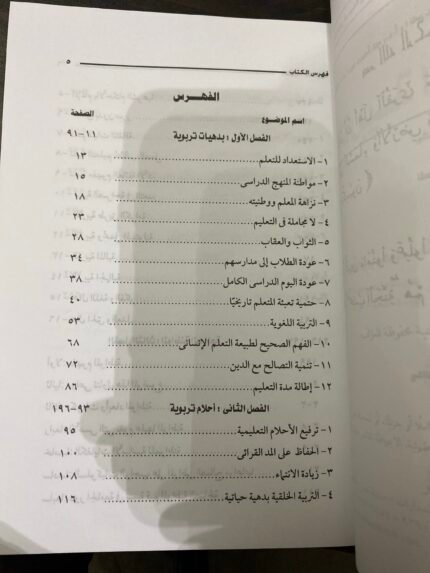 فهرس الكتاب ٥
الفهرس
اسم الموضوع الصفحة
الفصل الأول : بدهيات تربوية ١١-٩١
١- الاستعداد للتعلم ١٣
٢- مواطنة المنهج الدراسى ١٥
٣- نزاهة المعلم ووطنيته ١٨
٤- لا مجاملة فى التعليم ٢٣
٥- الثواب والعقاب ٢٨
٦- عودة الطلاب إلى مدارسهم ٣٤
٧- عودة اليوم الدراسى الكامل ٣٨
٨- حتمية تعبئة المتعلم تاريخيًا ٤٠
٩- التربية اللغوية ٥٣
١٠- الفهم الصحيح لطبيعة التعلم الإنسانى ٦٨
١١- تنمية التصالح مع الدين ٧٢
١٢- إطالة مدة التعليم ٨٦
الفصل الثانى : أحلام تربوية ٩٣-١٩٦
١- ترقيع الأحلام التعليمية ٩٥
٢- الحفاظ على المد القرائى ١٠٠
٣- زيادة الانتماء ١٠٨
٤- التربية الخلقية بدهية حياتية ١١٦